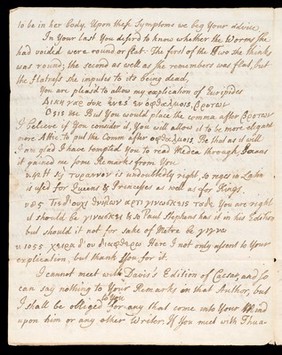 to be in her body. Upon these Symptoms we beg Your advice.
In Your Last You desired to know whether the Worms she
had voided were round or flat. The first of the Two she thinks
was round; the second as well as she remembers was flat, but
the flatness she imputes to its being dead,
You are pleas'd to allow my explication of Euripides
Δικη γαρ ουκ ενεσ' εν οφθαλμοις βροτων
Οστις &c But You would place the comma after βροτων
I believe if You consider it, You will allow it to be more elegant
more Attic to put the Comma after οφθαλμοις. Be that as it will
I am glad I have tempted You to read Medea through, because
it gained me some Remarks from You
is undoubtedly right, so reges in Latin
is used for Queens & Princesses as well as for Kings.
You are right it
should be γινωσκει & so Paul Stephens has it in his Edition
but should it not for sake of Metre be
v. 1055 χειρα δ' ου διαφθερω Here I not only assent to Your
explication, but thank You for it.
I cannot meet with Davis's Edition of Caesar, and so
can say nothing to Your Remarks on that Author, but
I shall be obliged to You for any that come into Your Mind
upon him or any other Writer. If You meet with Thua-